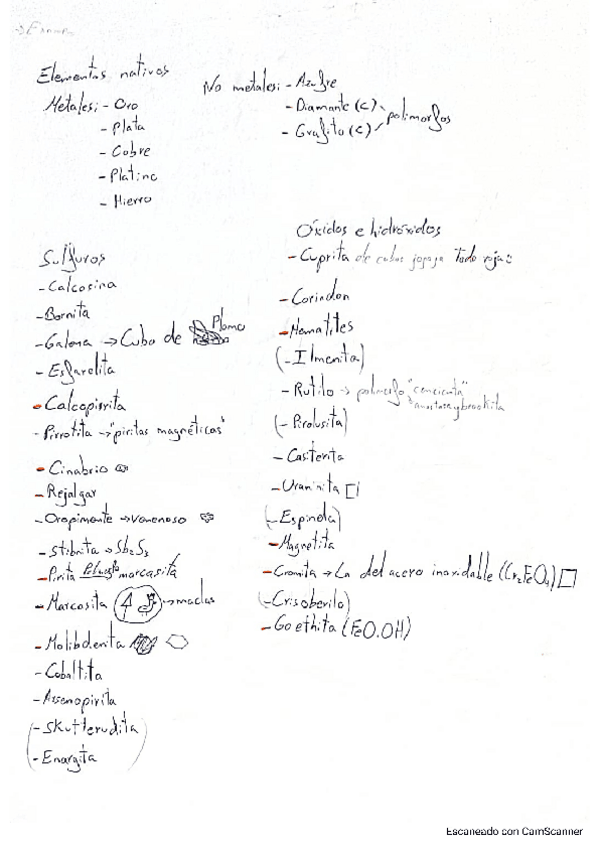 Elementos nativos
Metales: - Oro
- Plata
- Cobre
- Platino
- Hierro
No metales: - Azufre
- Diamante (C)
- Grafito (C)
polimorfos
Sulfuros
- Calcosina
- Bornita
- Galena → Cubo de Plomo
- Esfarelita
- Calcopirita
- Pirrotita → "piritas magnéticas"
- Cinabrio
- Rejalgar
- Oropimente → venenoso
- Stibnita → Sb2S3
- Pirita marcasita
- Marcasita → maclas
- Molibdenita
- Cobaltita
- Arsenopirita
(- Skutterudita
- Enargita)
Óxidos e hidróxidos
- Cuprita de cubos jajaja Todo roja
- Corindon
- Hematites
(- Ilmenita)
- Rutilo → polimorfo
(- Pirolusita)
- Casiterita
- Uraninita
(- Espinela)
- Magnetita
- Cromita → La del acero inoxidable (Cr2FeO4)
(- Crisoberilo)
- Goethita (FeO.OH)
Escaneado con CamScanner